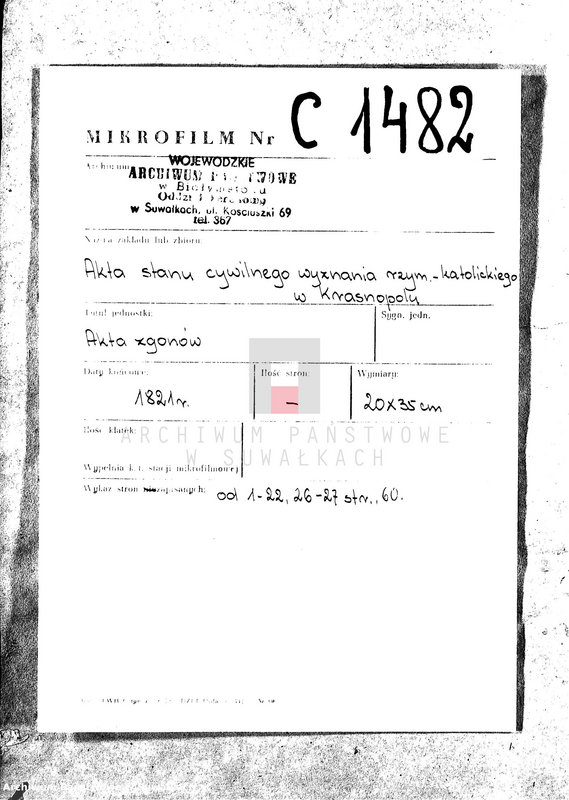 MIKROFILM Nr C 1482
Archiwum
WOJEWÓDZKIE
ARCHIWUM
w
w Suwałkach, ul. Kościuszki 69
tel. 367
Nazwa zakładu lub zbioru:
Akta stanu cywilnego wyznania rzym.-katolickiego
w Krasnopolu
Tytuł jednostki: Sygn. jedn.
Akta zgonów
Daty końcowe: Ilość stron: Wymiary:
1821r. — 20X35cm
Ilość klatek:
ARCHIWUM PAŃSTWOWE
W SUWAŁKACH
Wypełnia k.t. stacji mikrofilmowej
Wykaz stron zapisanych: od 1-22, 26-27 str., 60.